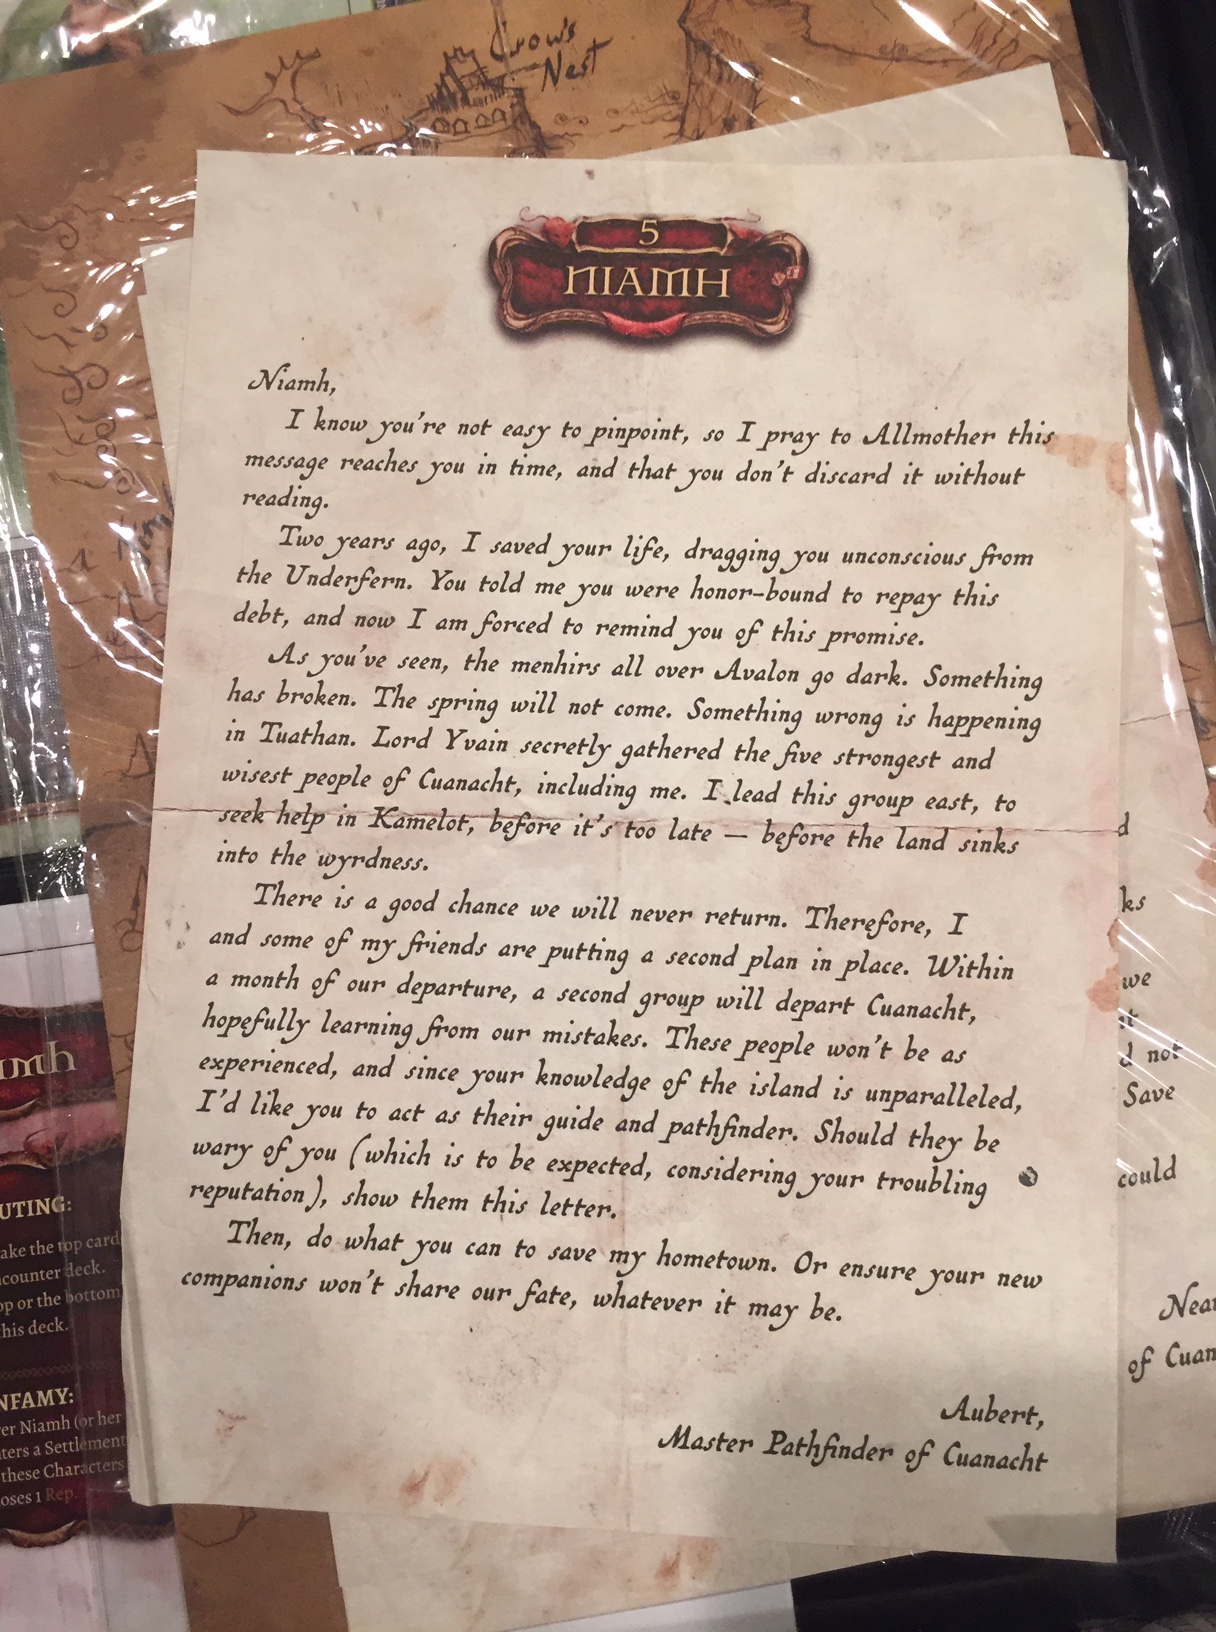 Crow's
Nest
5
NIAMH
Niamh,
I know you're not easy to pinpoint, so I pray to Allmother this
message reaches you in time, and that you don't discard it without
reading.
Two years ago, I saved your life, dragging you unconscious from
the Underfern. You told me you were honor-bound to repay this
debt, and now I am forced to remind you of this promise.
As you've seen, the menhirs all over Avalon go dark. Something
has broken. The spring will not come. Something wrong is happening
in Tuathan. Lord Yvain secretly gathered the five strongest and
wisest people of Cuanacht, including me. I lead this group east, to
seek help in Kamelot, before it's too late — before the land sinks
into the wyrdness.
There is a good chance we will never return. Therefore, I
and some of my friends are putting a second plan in place. Within
a month of our departure, a second group will depart Cuanacht,
hopefully learning from our mistakes. These people won't be as
experienced, and since your knowledge of the island is unparalleled,
I'd like you to act as their guide and pathfinder. Should they be
wary of you (which is to be expected, considering your troubling
reputation), show them this letter.
Then, do what you can to save my hometown. Or ensure your new
companions won't share our fate, whatever it may be.
Aubert,
Master Pathfinder of Cuanacht
d
ks
we
it
d not
Save
could
Near
of Cuan
amh
UTING:
ake the top card
counter deck.
op or the bottom
his deck.
NFAMY:
er Niamh (or her
ters a Settlement
these Characters
oses 1 Rep.